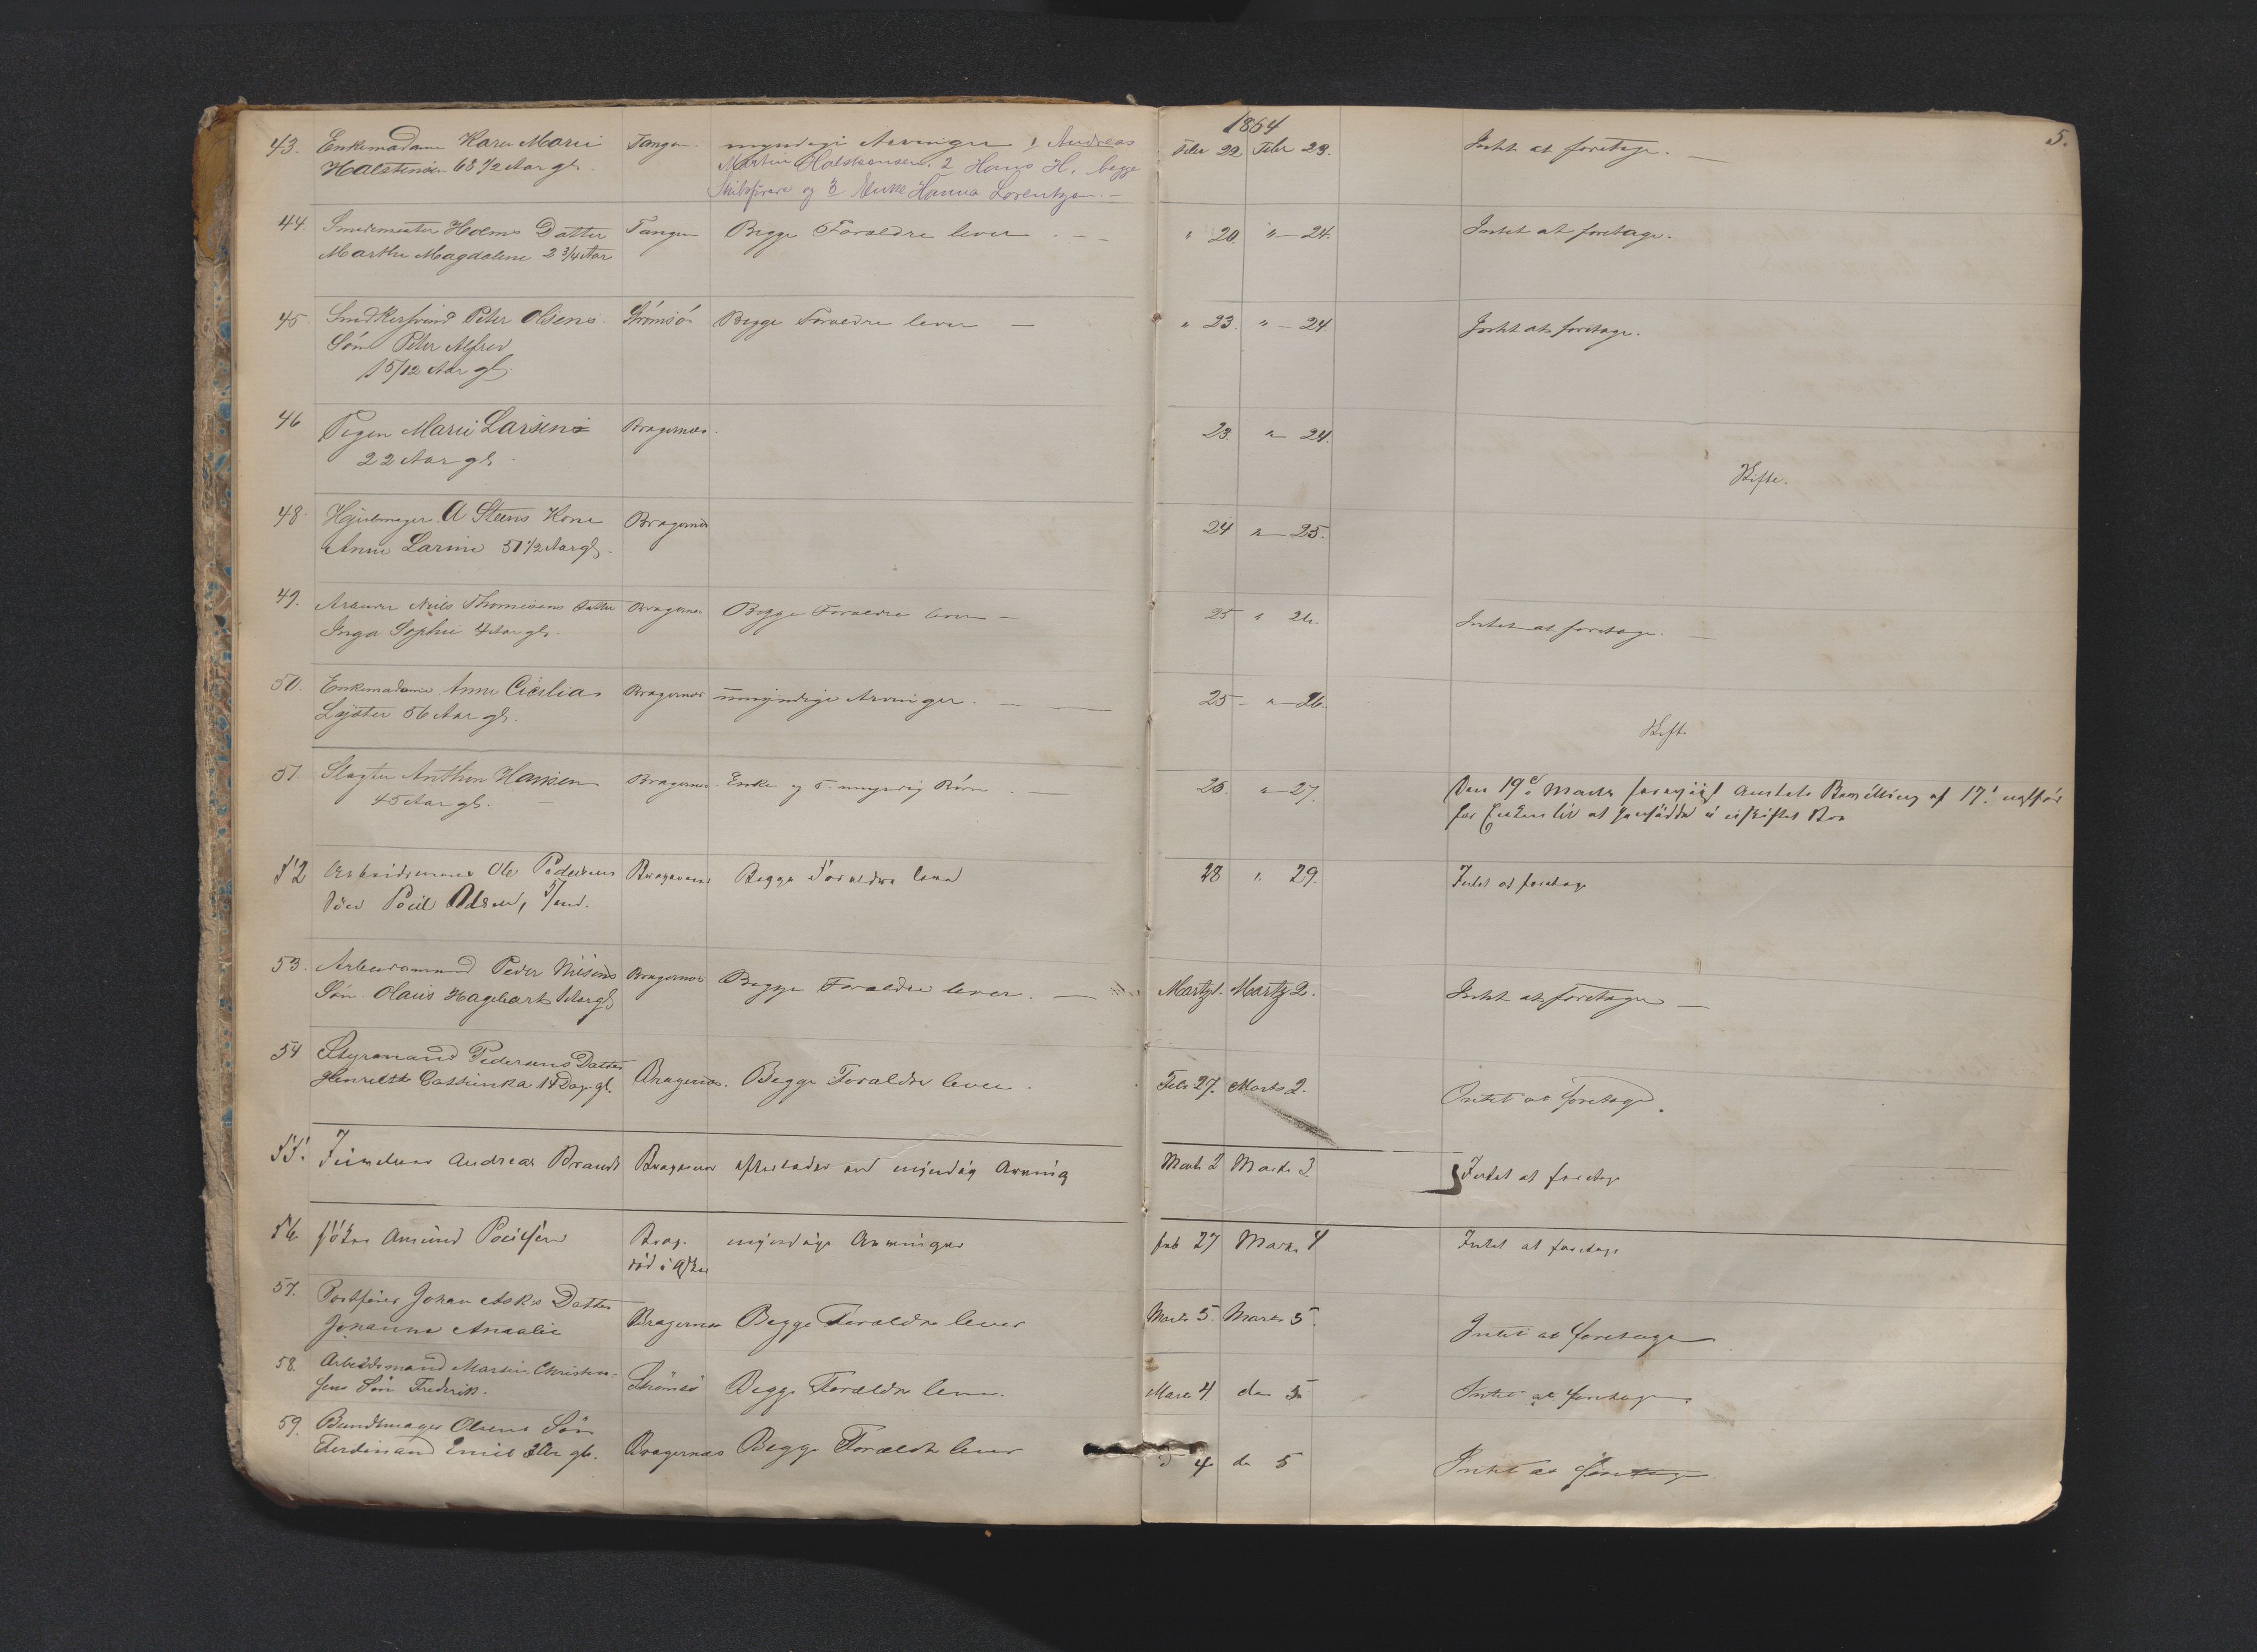 1864
5.
43. Enkemadame Karen Marie Tangen. myndige Arvinger 1 Andreas Febr 22 Febr 23. Intet at foretage. —
Halstensen 63 1/2 Aar gl. Martin Halstensen. 2 Hans H. begge
Skibsførere og 3 Enke Hanna Lorentzen. —
44. Smedemester Holms Datter Tangen Begge Forældre lever — " 20. " — 24. Intet at foretage.
Marthe Magdalene 2 3/4 Aar
45. Smedkersvend Peter Olsens Strømsø Begge Forældre lever — " 23. " — 24 Intet at foretage.
Søn Peter Alfred
1 5/12 Aar gl.
46 Pigen Marie Larsen Bragernæs. 23. " — 24.
22 Aar gl. Skifte.
48. Hjulmager A Steens Kone Bragernæs 24 " — 25.
Anne Larine 51 1/2 Aar gl.
49. Arbeider Niels Thomesens Datter Bragernæs Begge Forældre lever — 25 " 26 Intet at foretage. —
Inga Sophie 4 Aar gl.
50. Enkemadame Anne Cicilia Bragernæs umyndige Arvinger. — 25 — " — 26.
56 Aar gl. Skifte
51. Slagter Anthon Hansen Bragernes. Enke og 5 umyndig Børn. — 26. " — 27. Den 19de Marts Bevilling af 17. 
45 Aar gl. — for Enken til at i uskiftet Bo
52 Arbeidsmand Ole Pedersens Bragernes Begge Forældre lever 28 " 29. Intet at foretage
Søn Poul Olsen,
53. Arbeidsmand Peder Nilsens Bragernæs Begge Forældre lever. — Martz 1. Martz 2. Intet at foretage —
Søn Olaus Hagebart Aar gl
54 Styrmand Pedersens Datter Bragernæs. Begge Forældre lever. Febr 27. Marts 2. Intet at foretage.
Henrette Cathinka 14 Dage gl.
55. Andreas Brandt Bragernes efterlader en myndig Arving Marts 2 Marts 3 Intet at foretage
56. Amund Poulsen Brag. myndige Arvinger Feb 27 Marts 4 Intet at foretage
død i Asker
57. Johan Asks Datter Bragernæs Begge Forældre lever Marts 5. Marts 5. Intet at foretage
Johanne Amalie
58. Arbeidsmand Martin Christen- Strømsø Begge Forældre lever. Marts 4. do 5 Intet at foretage.
sens Søn Frederik.
59. Bundtmager Olsens Søn Bragernæs Begge Forældre lever 4 do 5 Intet at foretage
Ferdinand Emil 2 Aar gl.